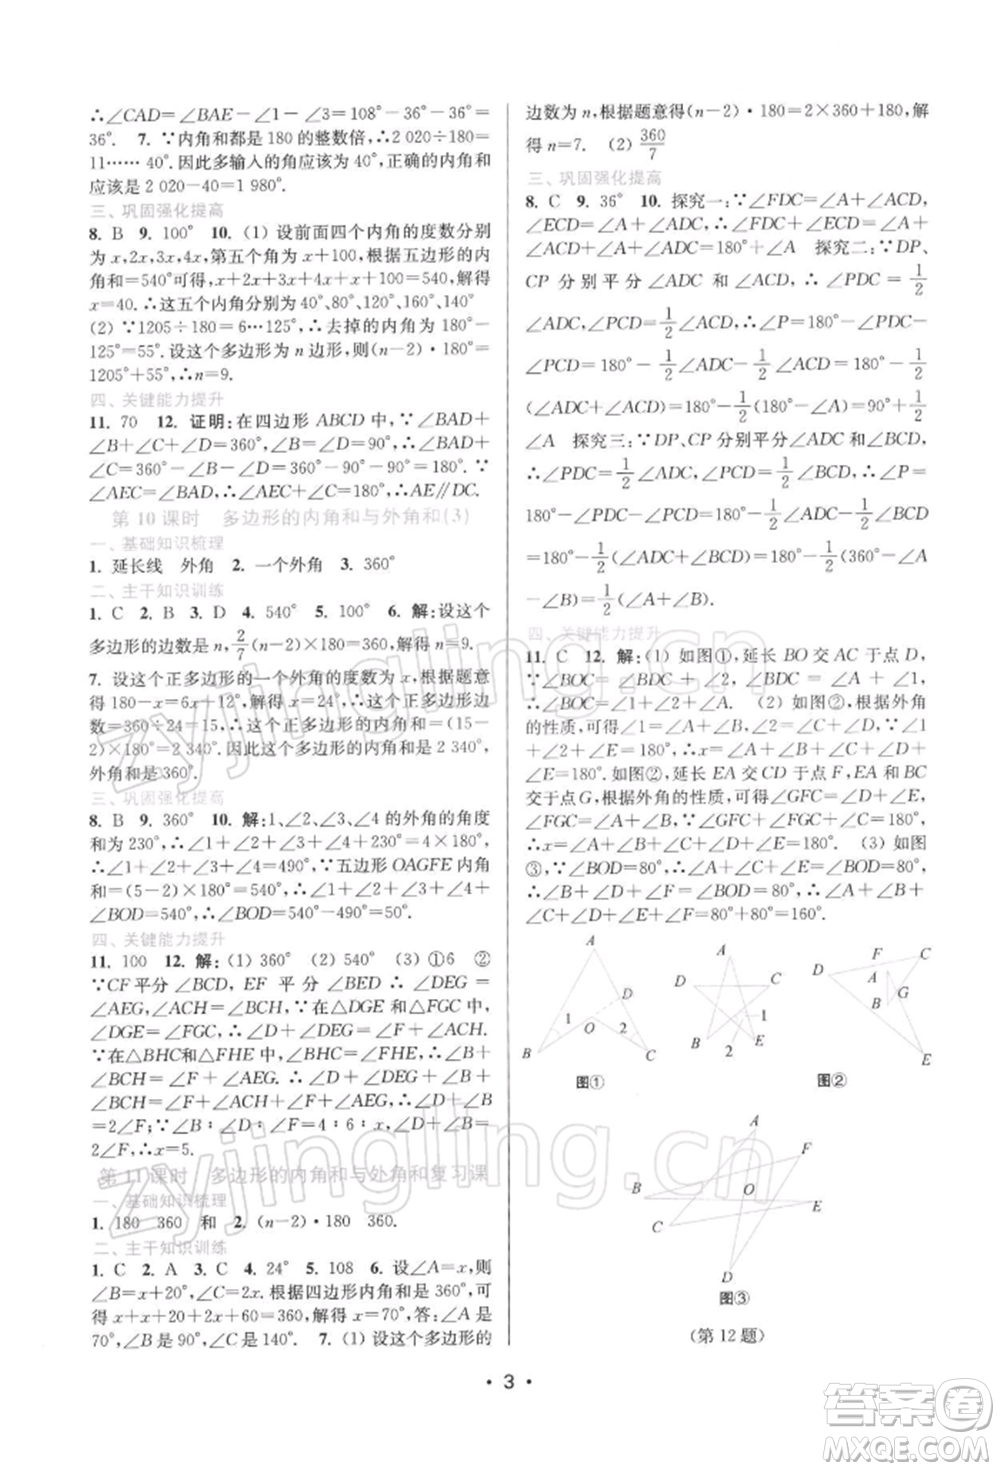 ∴∠CAD=∠BAE-∠1-∠3=108°-36°-36°=
36°.  7. ∵内角和都是 180 的整数倍,∴2 020÷180=
11……40. 因此多输入的角应该为 40°,正确的内角和
应该是 2 020-40=1 980°.
三、巩固强化提高
8. B  9. 100°  10. (1) 设前面四个内角的度数分别
为 x,2x,3x,4x,第五个角为 x+100,根据五边形的内
角和=540°可得,x+2x+3x+4x+x+100=540,解得
x=40. ∴这五个内角分别为 40°、80°、120°、160°、140°
(2) ∵1205÷180=6…125°,∴去掉的内角为 180°-
125°=55°. 设这个多边形为 n 边形,则(n-2)·180°=
1205°+55°,∴n=9.
四、关键能力提升
11. 70  12. 证明:在四边形 ABCD 中,∵∠BAD+
∠B+∠C+∠D=360°,∠B=∠D=90°,∴∠BAD+
∠C=360°-(∠B+∠D)=360°-180°=180°. ∵
∠AEC=∠BAD,∴∠AEC+∠C=180°,∴AE∥DC.
第 10 课时  多边形的内角和与外角和(3)
一、基础知识梳理
1. 延长线  外角  2. 一个外角  3. 360°
二、主干知识训练
1. C  2. B  3. D  4. 540°  5. 100°  6. 解:设这个
多边形的边数是 n,2/7(n-2)×180=360,解得 n=9.
7. 设这个正多边形的一个外角的度数为 x,根据题意
得 180-x=6x+12°,解得 x=24°,∴这个正多边形边
数=360÷24=15,∴这个正多边形的内角和=(15-
2)×180°=2 340°. ∴这个多边形的内角和是 2 340°,
外角和是360°.
三、巩固强化提高
8. B  9. 360°  10. 解:∠1、∠2、∠3、∠4 的外角的角度
和为 230°,∴∠1+∠2+∠3+∠4+230°=4×180°,
∴∠1+∠2+∠3+∠4=490°,∵五边形 OAGFE 内角
和=(5-2)×180°=540°,∴∠1+∠2+∠3+∠4+
∠BOD=540°,∴∠BOD=540°-490°=50°.
四、关键能力提升
11. 100  12. 解:(1) 360°  (2) 540°  (3) ①6  ②
∵CF平分∠BCD, EF 平分∠BED ∴∠DEG=
∠AEG,∠ACH=∠BCH,∵在△DGE 和△FGC 中,
∠DGE=∠FGC,∴∠D+∠DEG=∠F+∠ACH.
∵在△BHC和△FHE 中,∠BHC=∠FHE,∴∠B+
∠BCH=∠F+∠AEG. ∴∠D+∠DEG+∠B+
∠BCH=∠F+∠ACH+∠F+∠AEG,∴∠D+∠B
=2∠F;∵∠B:∠D:∠F=4:6:x,∴x=
5.
第 11 课时  多边形的内角和与外角和复习课
一、基础知识梳理
1. 180  360  和  2. (n-2)·180  360.
二、主干知识训练
1. C  2. A  3. C  4. 24°  5. 108  6. 设∠A=x,则
∠B=x+20°,∠C=2x. 根据四边形内角和是 360°,可
得 x+x+20+2x+60=360,解得 x=70°,答:∠A 是
70°,∠B 是 90°,∠C 是 140°.  7. (1) 设这个多边形的
边数为 n,根据题意得(n-2)·180=2×360+180,解
得 n=7.  (2) 360/7
三、巩固强化提高
8. C  9. 36°  10. 探究一:∵∠FDC=∠A+∠ACD,
∠ECD=∠A+∠ADC,∴∠FDC+∠ECD=∠A+
∠ACD+∠A+∠ADC=180°+∠A  探究二:∵DP、
CP 分别平分∠ADC 和∠ACD,∴∠PDC=1/2
∠ADC,∠PCD=1/2∠ACD,∴∠P=180°-∠PDC-
∠PCD=180°-1/2∠ADC-1/2∠ACD=180°-1/2
(∠ADC+∠ACD)=180°-1/2(180°-∠A)=90°+1/2
∠A  探究三:∵DP、CP 分别平分∠ADC 和∠BCD,
∴∠PDC=1/2∠ADC,∠PCD=1/2∠BCD,∴∠P=
180°-∠PDC-∠PCD=180°-1/2∠ADC-1/2∠BCD
=180°-1/2(∠ADC+∠BCD)=180°-1/2(360°-∠A
-∠B)=1/2(∠A+∠B).
四、关键能力提升
11. C  12. 解:(1) 如图①,延长 BO 交 AC 于点 D,
∵∠BOC=∠BDC+∠2,又∵∠BDC=∠A+∠1,
∴∠BOC=∠1+∠2+∠A.  (2) 如图②,根据外角
的性质,可得∠1=∠A+∠B,∠2=∠C+∠D,∵∠1
+∠2+∠E=180°,∴x=∠A+∠B+∠C+∠D+
∠E=180°. 如图②,延长 EA 交 CD 于点 F,EA 和 BC
交于点G,根据外角的性质,可得∠GFC=∠D+∠E,
∠FGC=∠A+∠B,∵∠GFC+∠FGC+∠C=180°,
∴x=∠A+∠B+∠C+∠D+∠E=180°.  (3) 如图
③,∵∠BOD=∠A+∠B+∠D,∠BOD=80°,∴
∠A+∠B+∠D=80°,∵∠BOD=80°,∠BOD=∠C
+∠E+∠F,∴∠C+∠E+∠F=80°,∴∠A+∠B+
∠C+∠D+∠E+∠F=80°+80°=160°.
A
D
1 O 2
B C
图①
A
B C D E
1
2
D F A C
B G
E
图②
A
F
B O E
C
D
图③
(第 12 题)
· 3 ·
zyjingling.cn
zyjingling.cn
答案圈
MXQE.COM